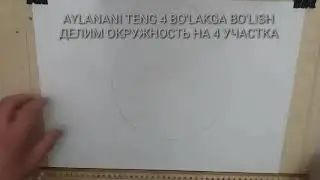 AYLANANI TENG 4 BO'LAKGA BO'LISH
ДЕЛИМ ОКРУЖНОСТЬ НА 4 УЧАСТКА